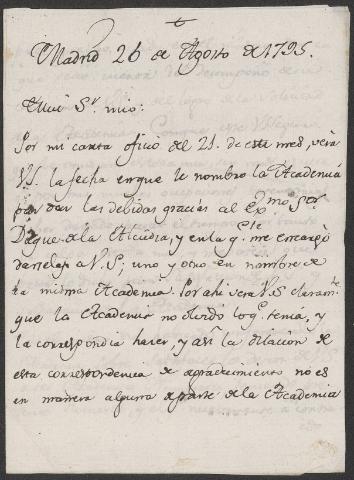 Madrid 26 de Agosto de 1795.
Mui Sr. mio:
Por mi carta oficio del 21. de este mes, verá
V.S. la fecha en que le nombró la Academia
para dar las debidas gracias al Exmo. Sor
Duque de la Alcudia, y en la qe. me encargó
darselas a V.S; uno y otro en nombre de
la misma Academia. Por ahi verá V.S claramte.
que la Academia no olvidó lo qe. tenia, y
la correspondia hacer, y así la dilacion de
esta correspondencia de agradecimiento no es
en manera alguna de parte de la Academia